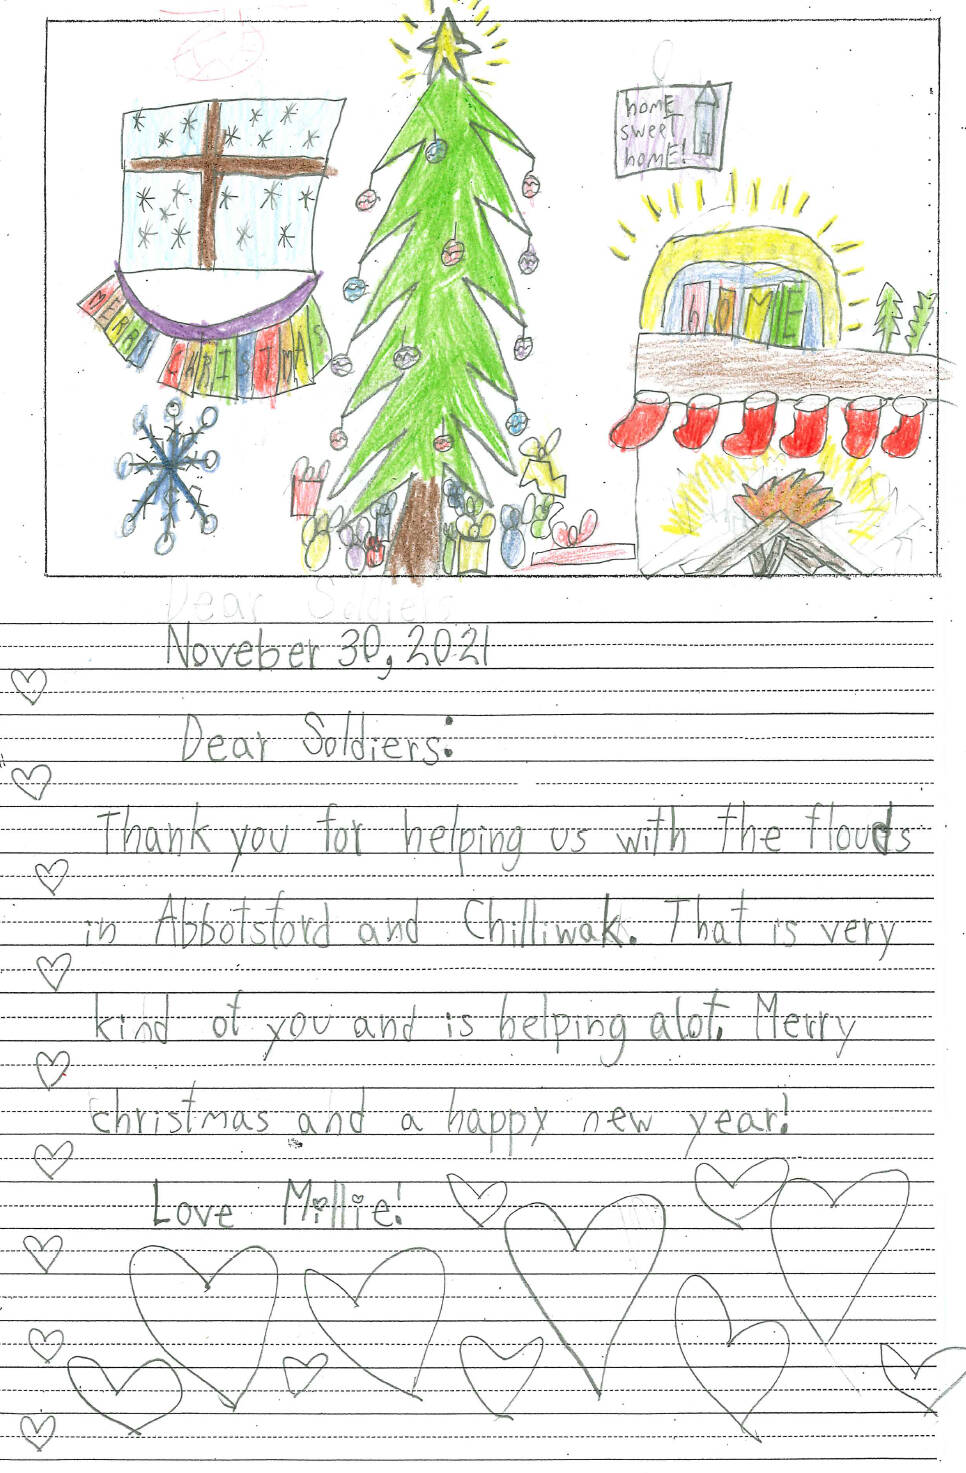 home
sweet
home!
MERRY
CHRISTMAS
HOME
Dear Soldiers
Noveber 30, 2021
Dear Soldiers:
Thank you for helping us with the flouds
in Abbotsford and Chilliwak. That is very
kind of you and is helping alot. Merry
christmas and a happy new year!
Love Millie!